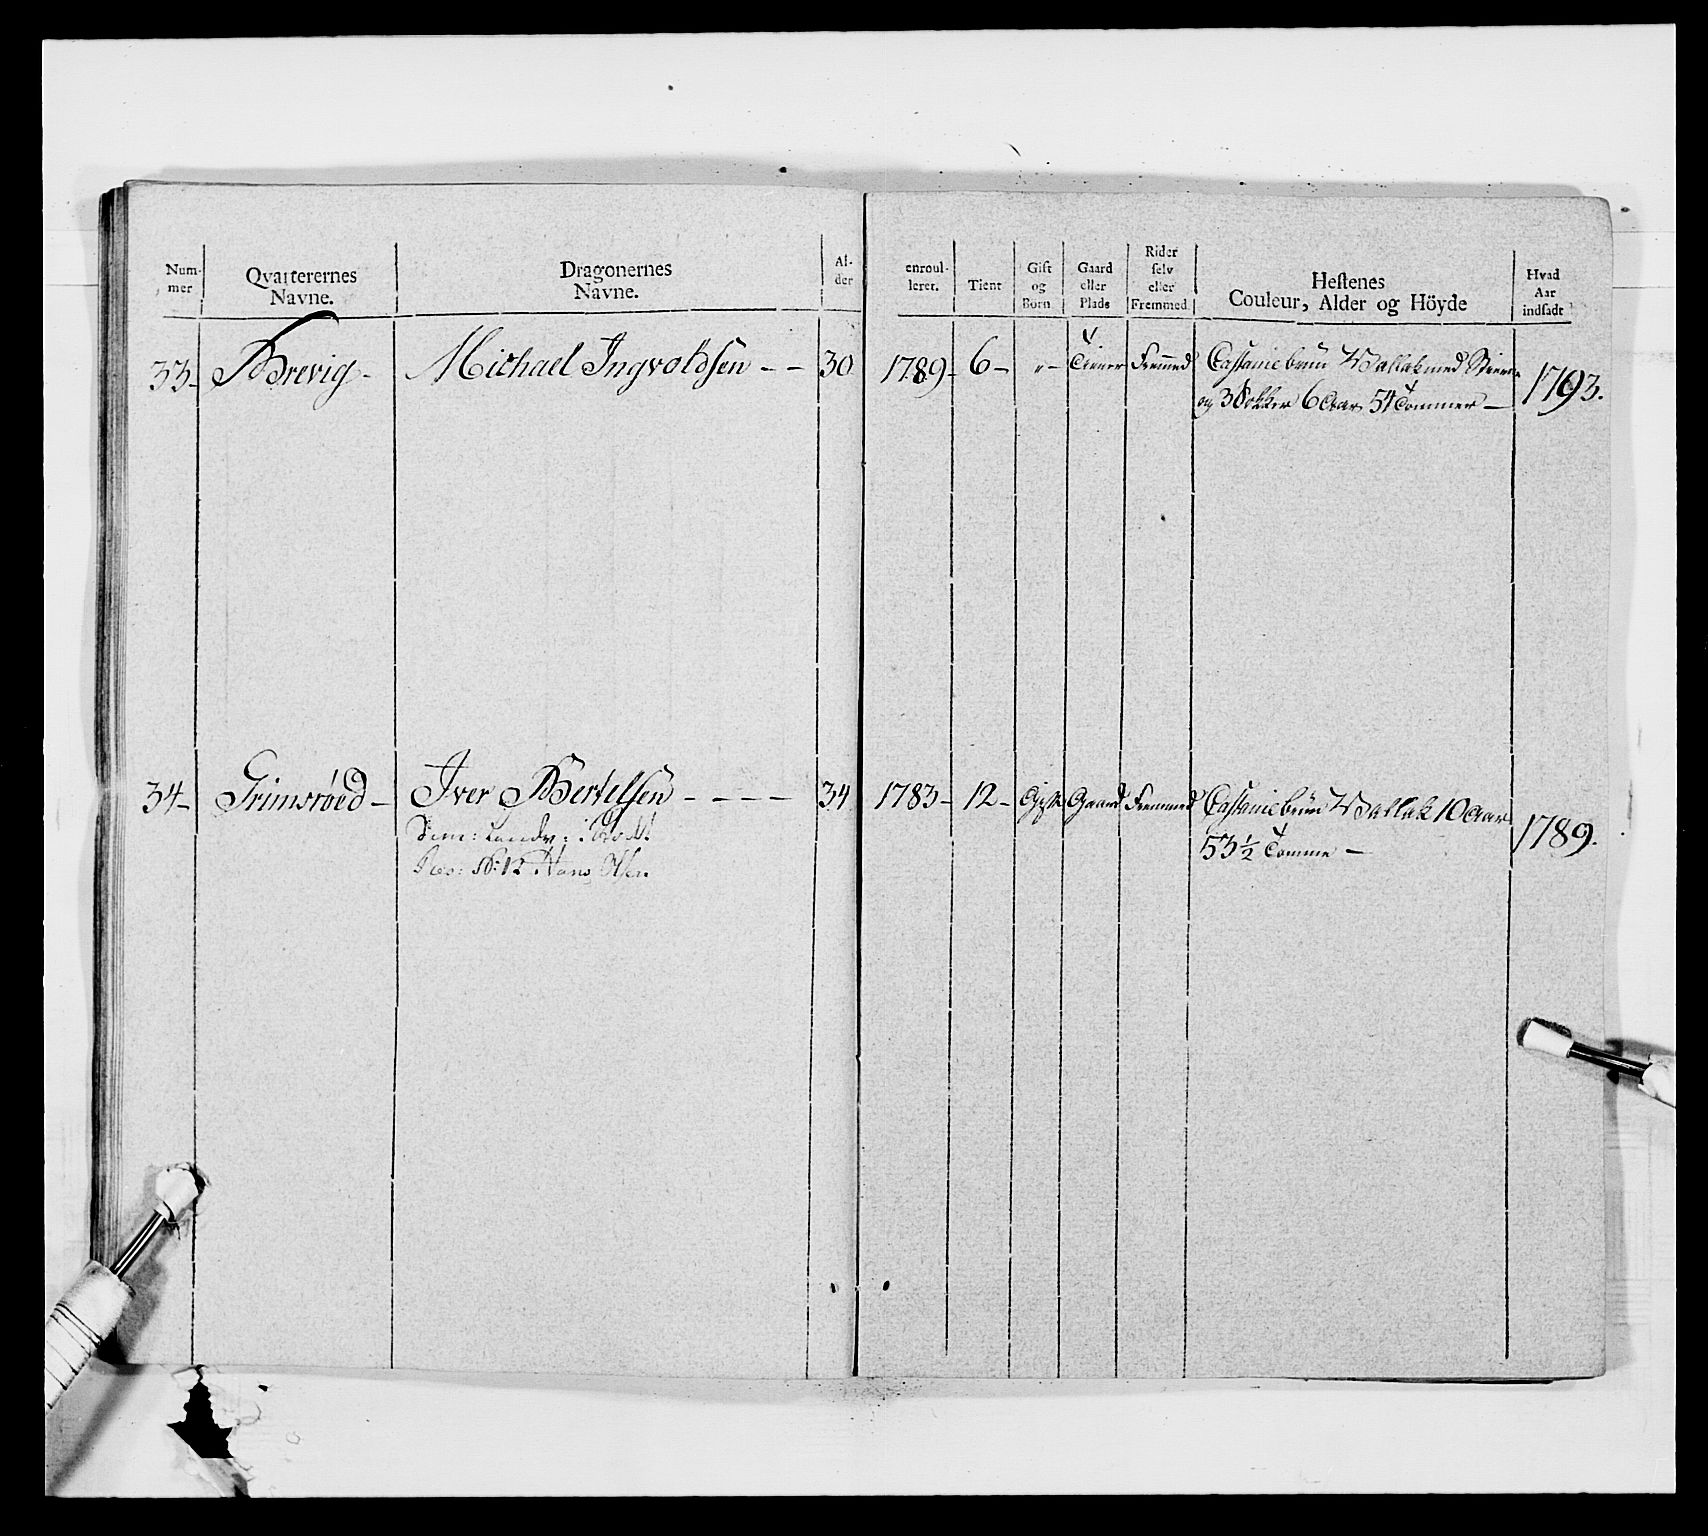 Num-
mer
Qvarterernes
Navne.
Dragonernes
Navne.
Al-
der
enroul-
leret.
Tient
Gift
og
Born
Gaard
eller
Plads
Rider
selv
eller
Fremmed
Hestenes
Couleur, Alder og Höyde
Hvad
Aar
indsadt
33- Brevig- Michael Ingvoldsen - - 30 1789- 6- "- Tiener Fremed Castaniebrun Wallak med Stierne
og 3 Sokker 6 Aar 54 Tommer -
1793.
34- Grimsröed- Iver Bertelsen - - - - 34 1783- 12- Gift Gaard Fremmed Castaniebrun Wallak 10 Aar
53½ Tomme -
1789.
Landv:
No: 12 Hans Olsen